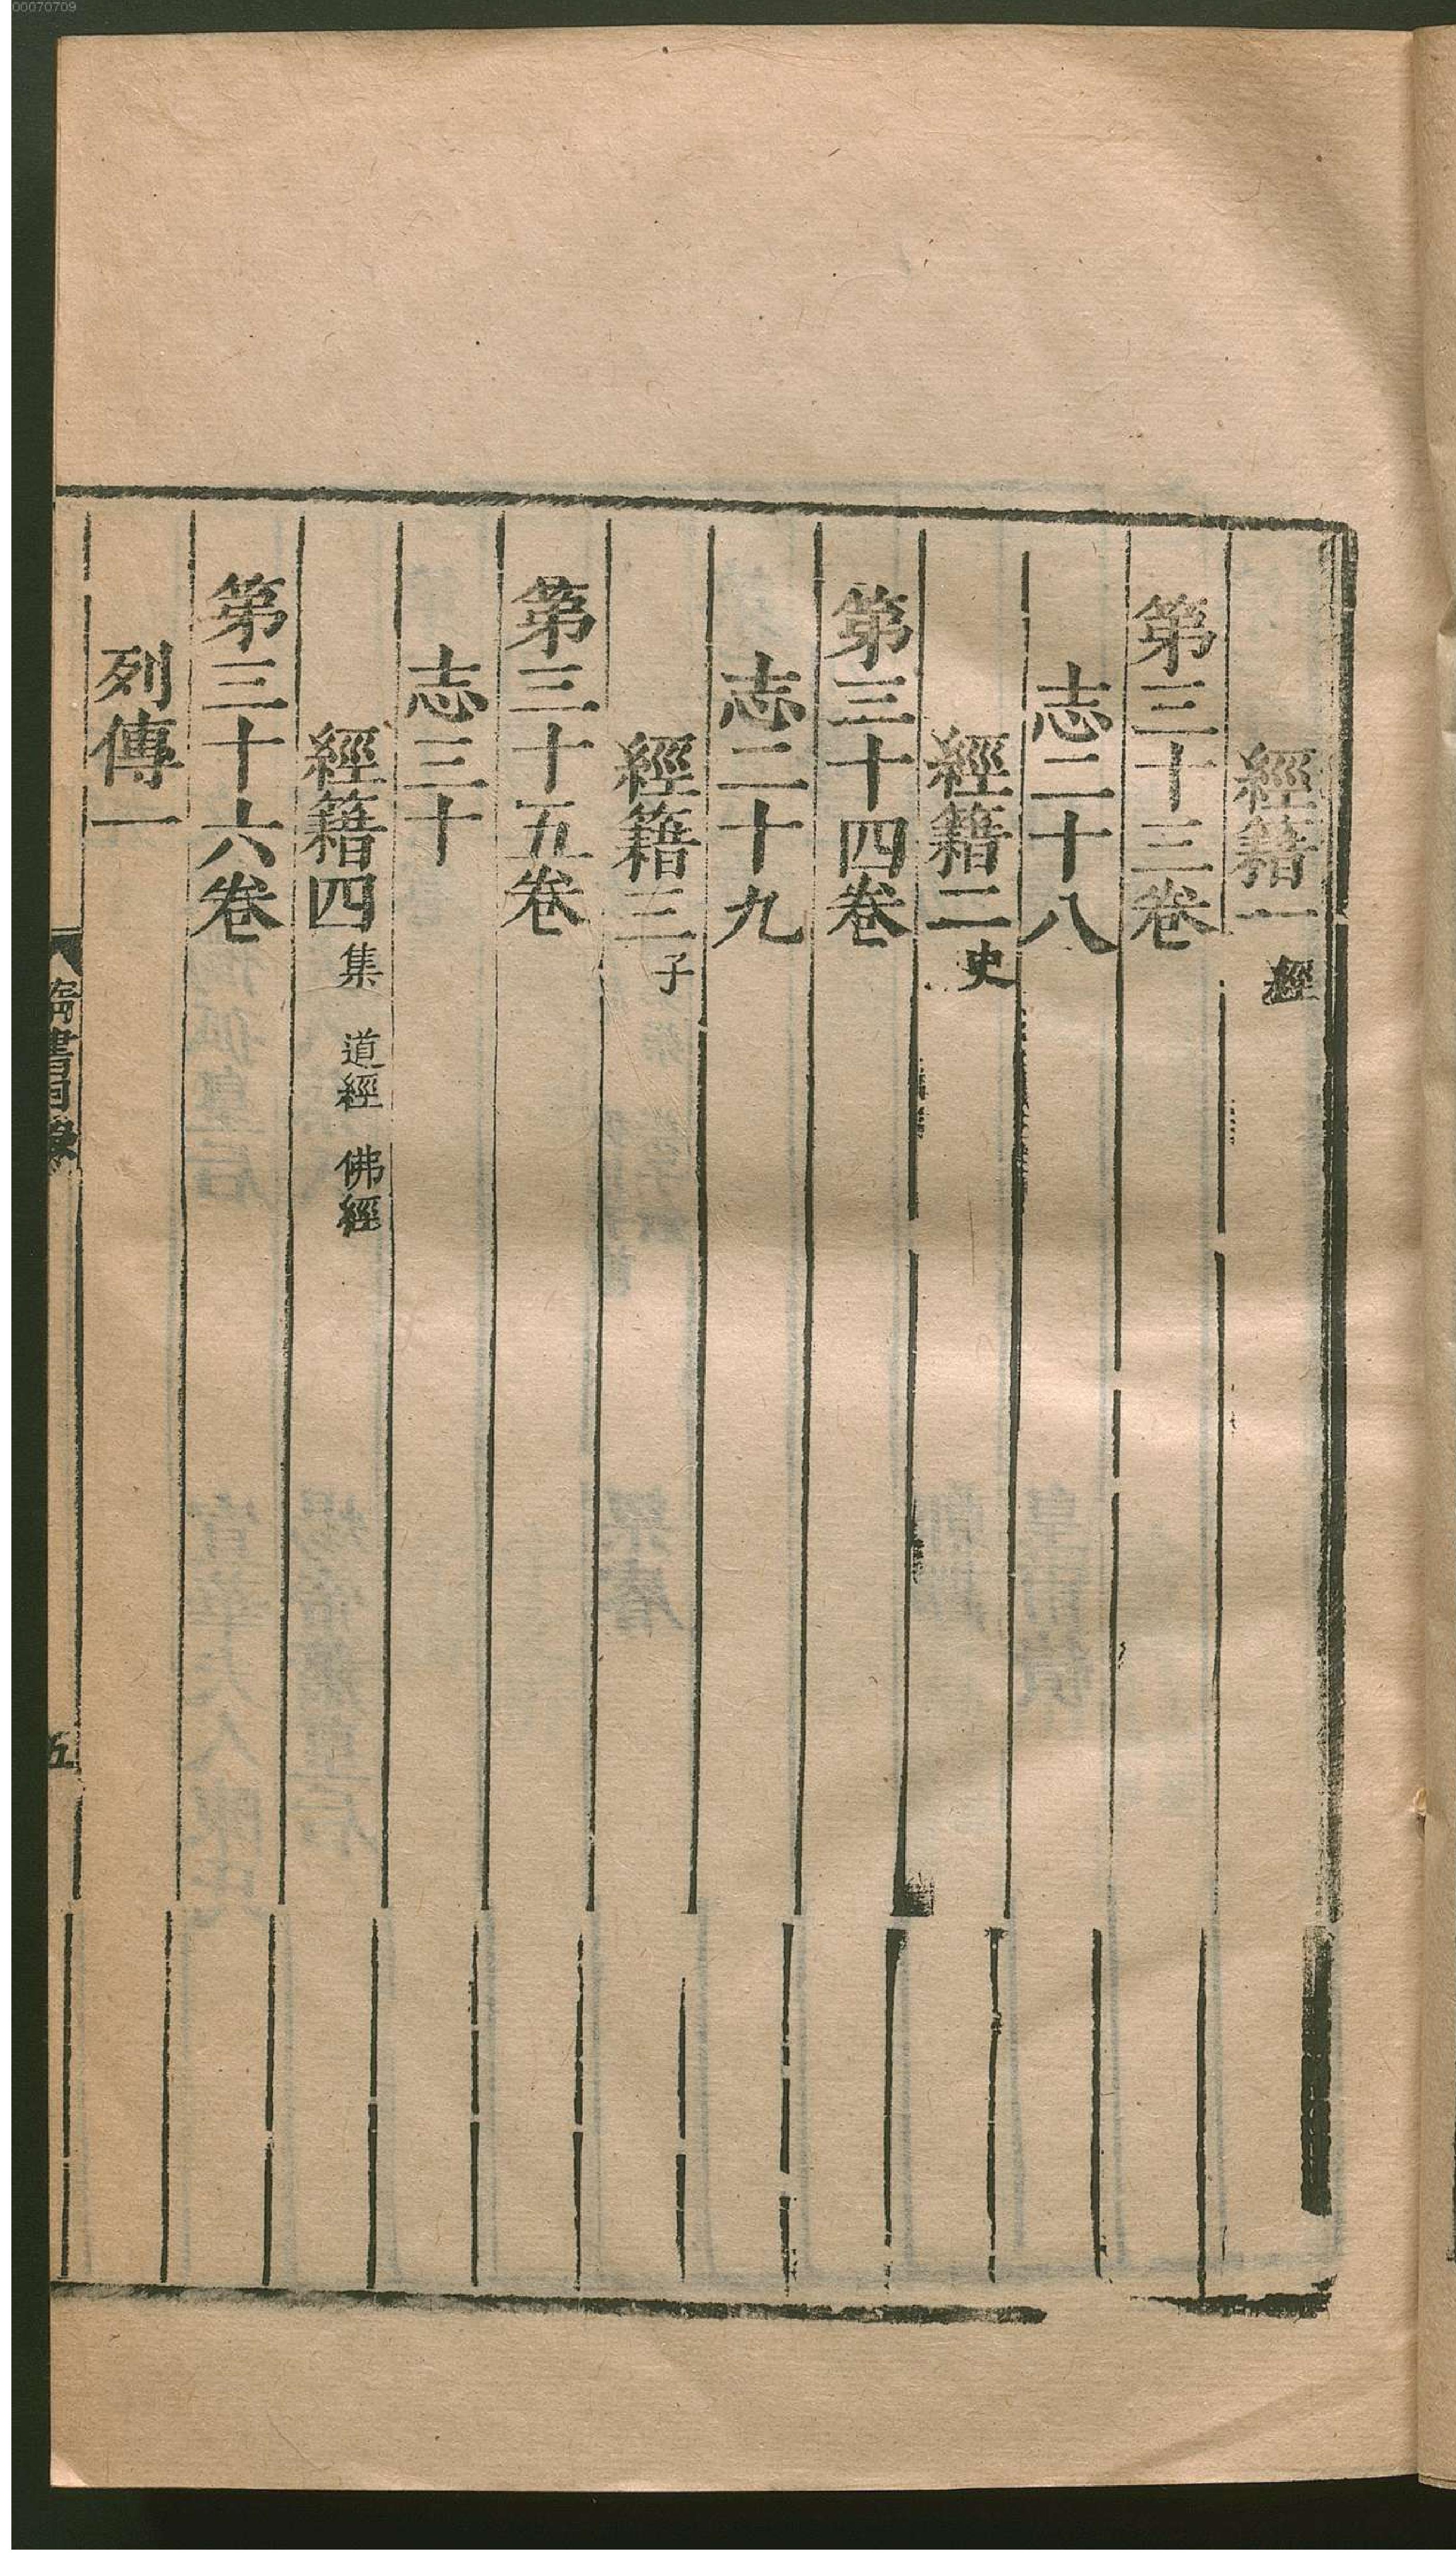 00070709
經籍一 經
第三十三卷
志二十八
經籍二 史
第三十四卷
志二十九
經籍三 子
第三十五卷
志三十
經籍四 集 道經 佛經
第三十六卷
列傳一
隋書目錄
五